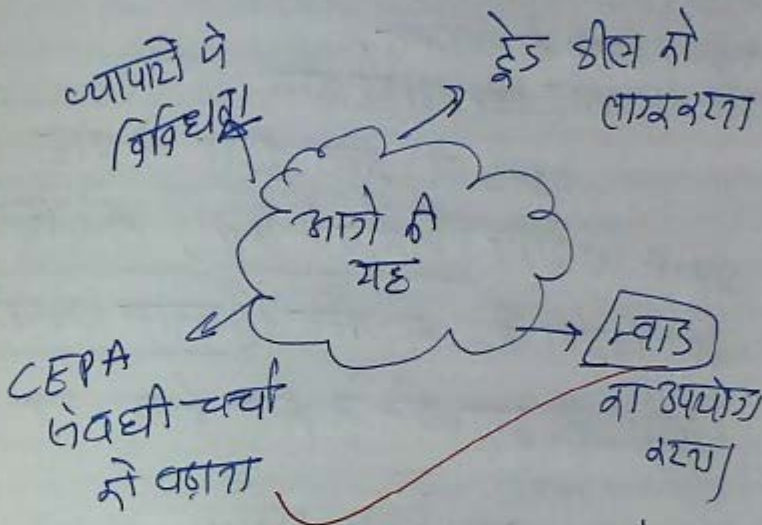 व्यापारो मे
विविधता
ट्रेड डील को
लागू करना
आगे की
राह
CEPA
संबधी चर्चा
को बढ़ाना
क्वाड
का उपयोग
करना